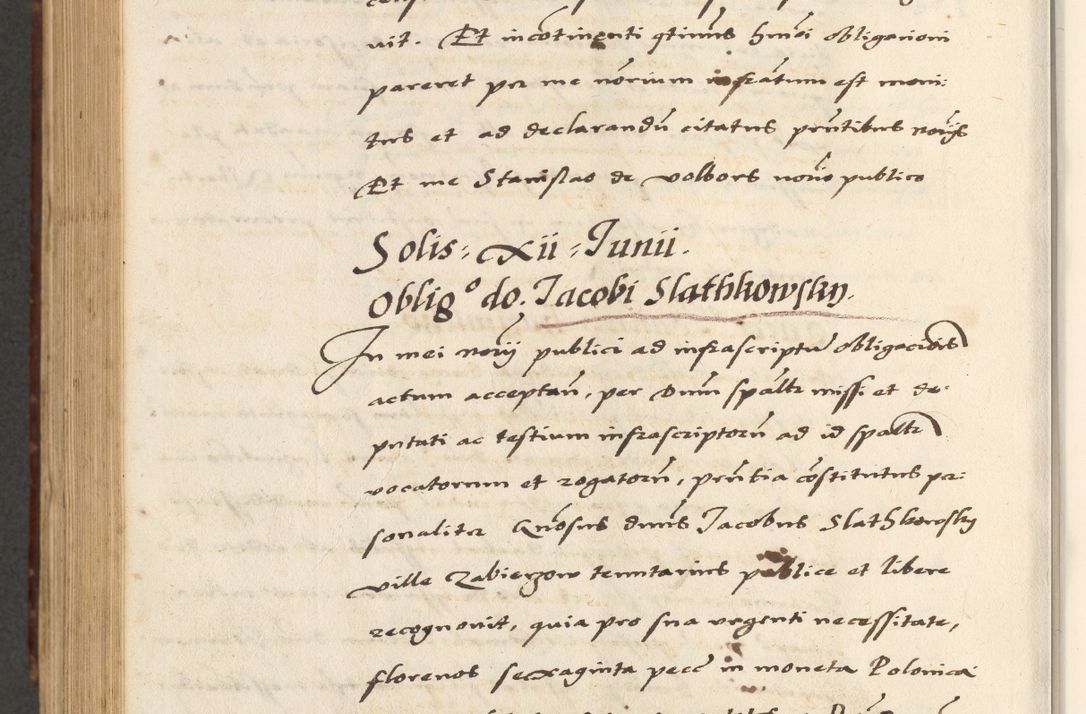 uit. Et incōtinenti qtinus hmōi obligacioni
pareret per me nōrium infrātum est moni:
tus et ad declarandū citatus pn̄tibus noīs
Et me Stanislao de volbors norio publico
Solis: xii : Junii.
Oblig° do. Jacobi Slathkowsky.
In mei norij publici ad infrascriptū obligacōis
actum acceptan̄, per Dnm̄ spāltr missi et de-
putati ac testium infrascriptorū ad id spāltr
vocatorum et rogatorū, pn̄tia cōstitutus per:
sonaliter Gn̄osus dnūs Jacobus Slathkowsky
ville Zabierzow tenutarius publice et libere
recognouit, quia pro sua urgenti necessitate,
florenos sexaginta pecc̄ in moneta Polonica